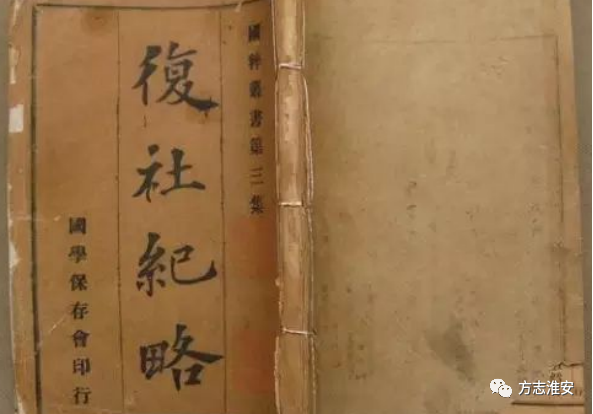 國粹叢書第三集
復社紀略
國學保存會印行
方志淮安